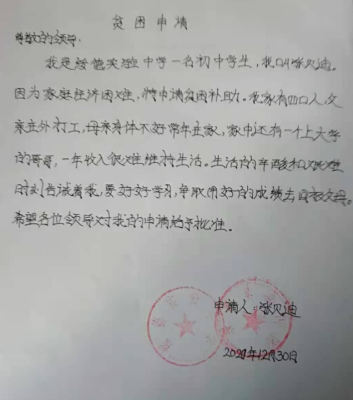 贫困申请
尊敬的领导:
我是 实验中学一名初中学生,我叫张贝迪。
因为家庭经济困难,特申请贫困补助。我家有四口人,父
亲在外打工,母亲身体不好常年在家,家中还有一个上大学
的哥哥,一年收入很难维持生活。生活的辛酸和艰难
时刻告诫着我,要好好学习,争取用好的成绩去回报父母。
希望各位领导对我的申请给予批准。
申请人:张贝迪
12月30日